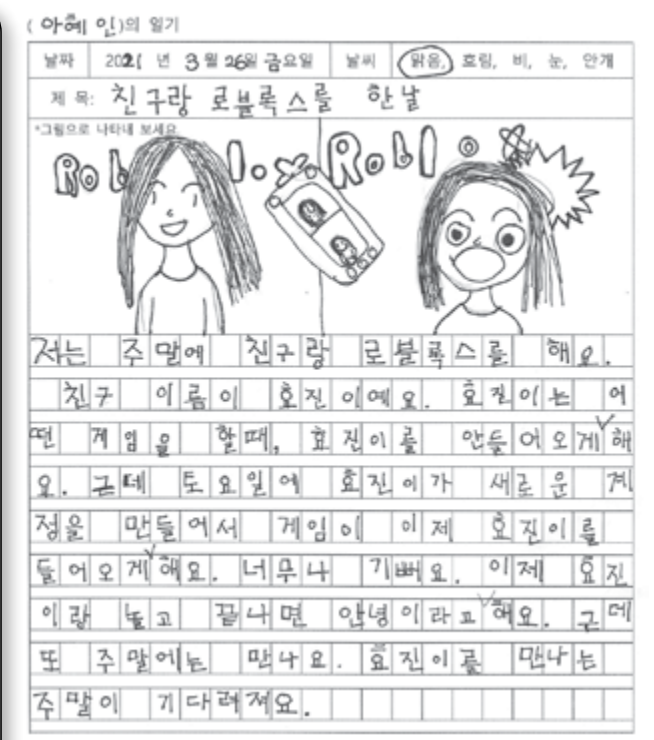 (아혜인)의 일기
날짜 2021 년 3월 26일 금요일 날씨 맑음, 흐림, 비, 눈, 안개
제 목: 친구랑 로블록스를 한날
*그림으로 나타내 보세요.
Roblox Roblo
저는 주말에 친구랑 로블록스를 해요.
친구 이름이 효진이예요. 효진이는 어
떤 게임을 할때, 효진이를 안들어오게해
요. 근데 토요일에 효진이가 새로운 계
정을 만들어서 게임이 이제 효진이를
들어오게해요. 너무나 기뻐요. 이제 효진
이랑 놀고 끝나면 안녕이라고해요. 근데
또 주말에는 만나요. 효진이를 만나는
주말이 기다려져요.